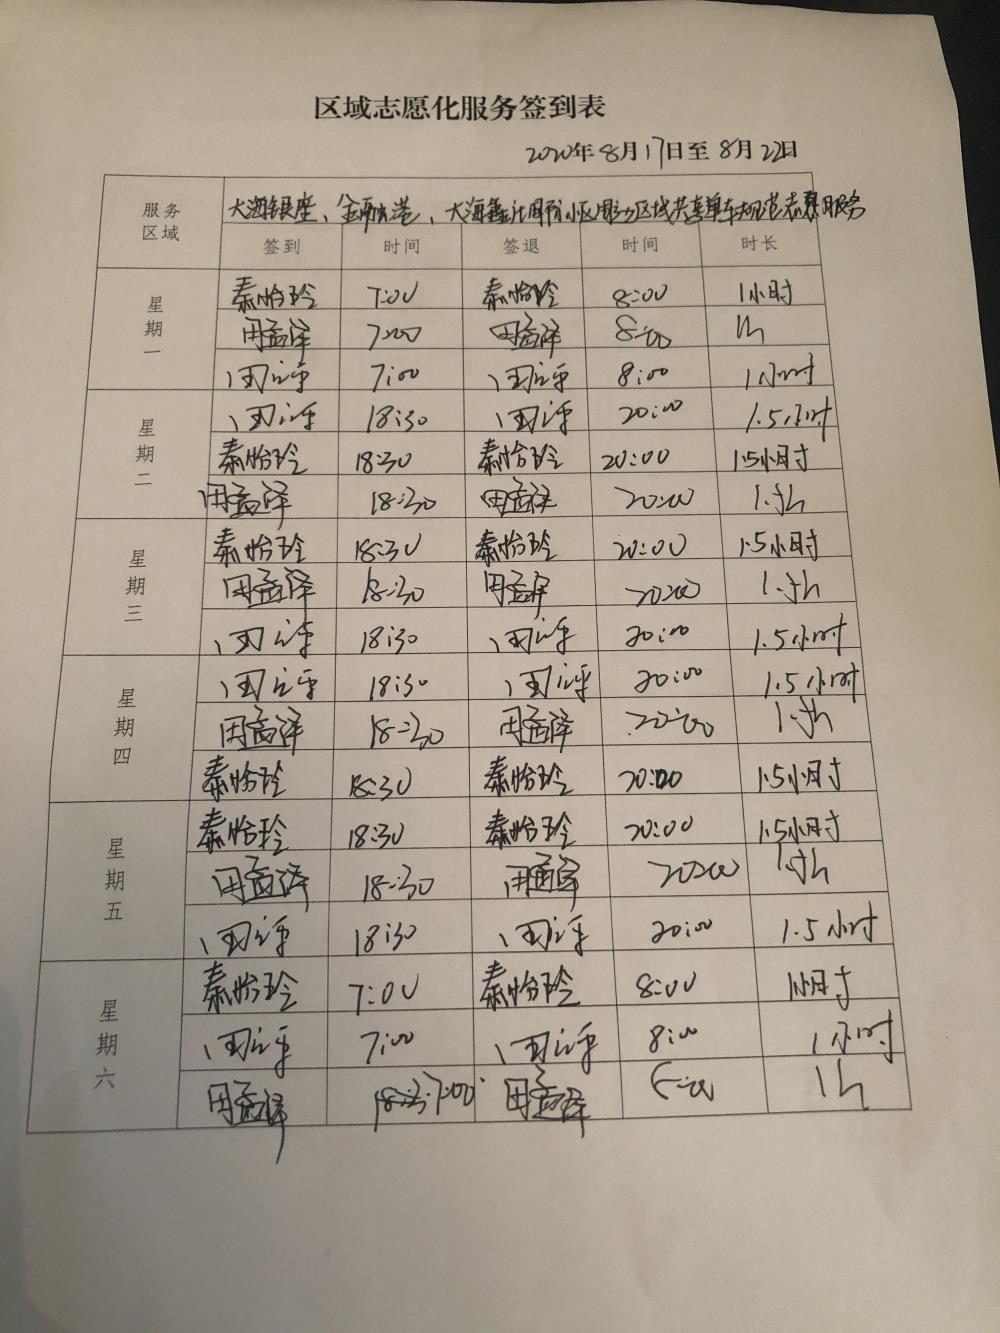 区域志愿化服务签到表
2020年8月17日至8月22日
服务区域 大海银座、金水港、大海小区周边区域共享单车规范志愿服务
签到 时间 签退 时间 时长
星期一
秦怡玲 7:00 秦怡玲 8:00 1小时
田孟泽 7:00 田孟泽 8:00 1h
7:00 8:00 1小时
星期二
18:30 20:00 1.5小时
秦怡玲 18:30 秦怡玲 20:00 1.5小时
田孟泽 18:30 田孟泽 20:00 1.5h
星期三
秦怡玲 18:30 秦怡玲 20:00 1.5小时
田孟泽 18:30 田孟泽 20:00 1.5h
18:30 20:00 1.5小时
星期四
18:30 20:00 1.5小时
田孟泽 18:30 田孟泽 20:00 1.5h
秦怡玲 18:30 秦怡玲 20:00 1.5小时
星期五
秦怡玲 18:30 秦怡玲 20:00 1.5小时
田孟泽 18:30 田孟泽 20:00 1.5h
18:30 20:00 1.5小时
星期六
秦怡玲 7:00 秦怡玲 8:00 1小时
7:00 8:00 1小时
田孟泽 7:00 田孟泽 8:00 1h